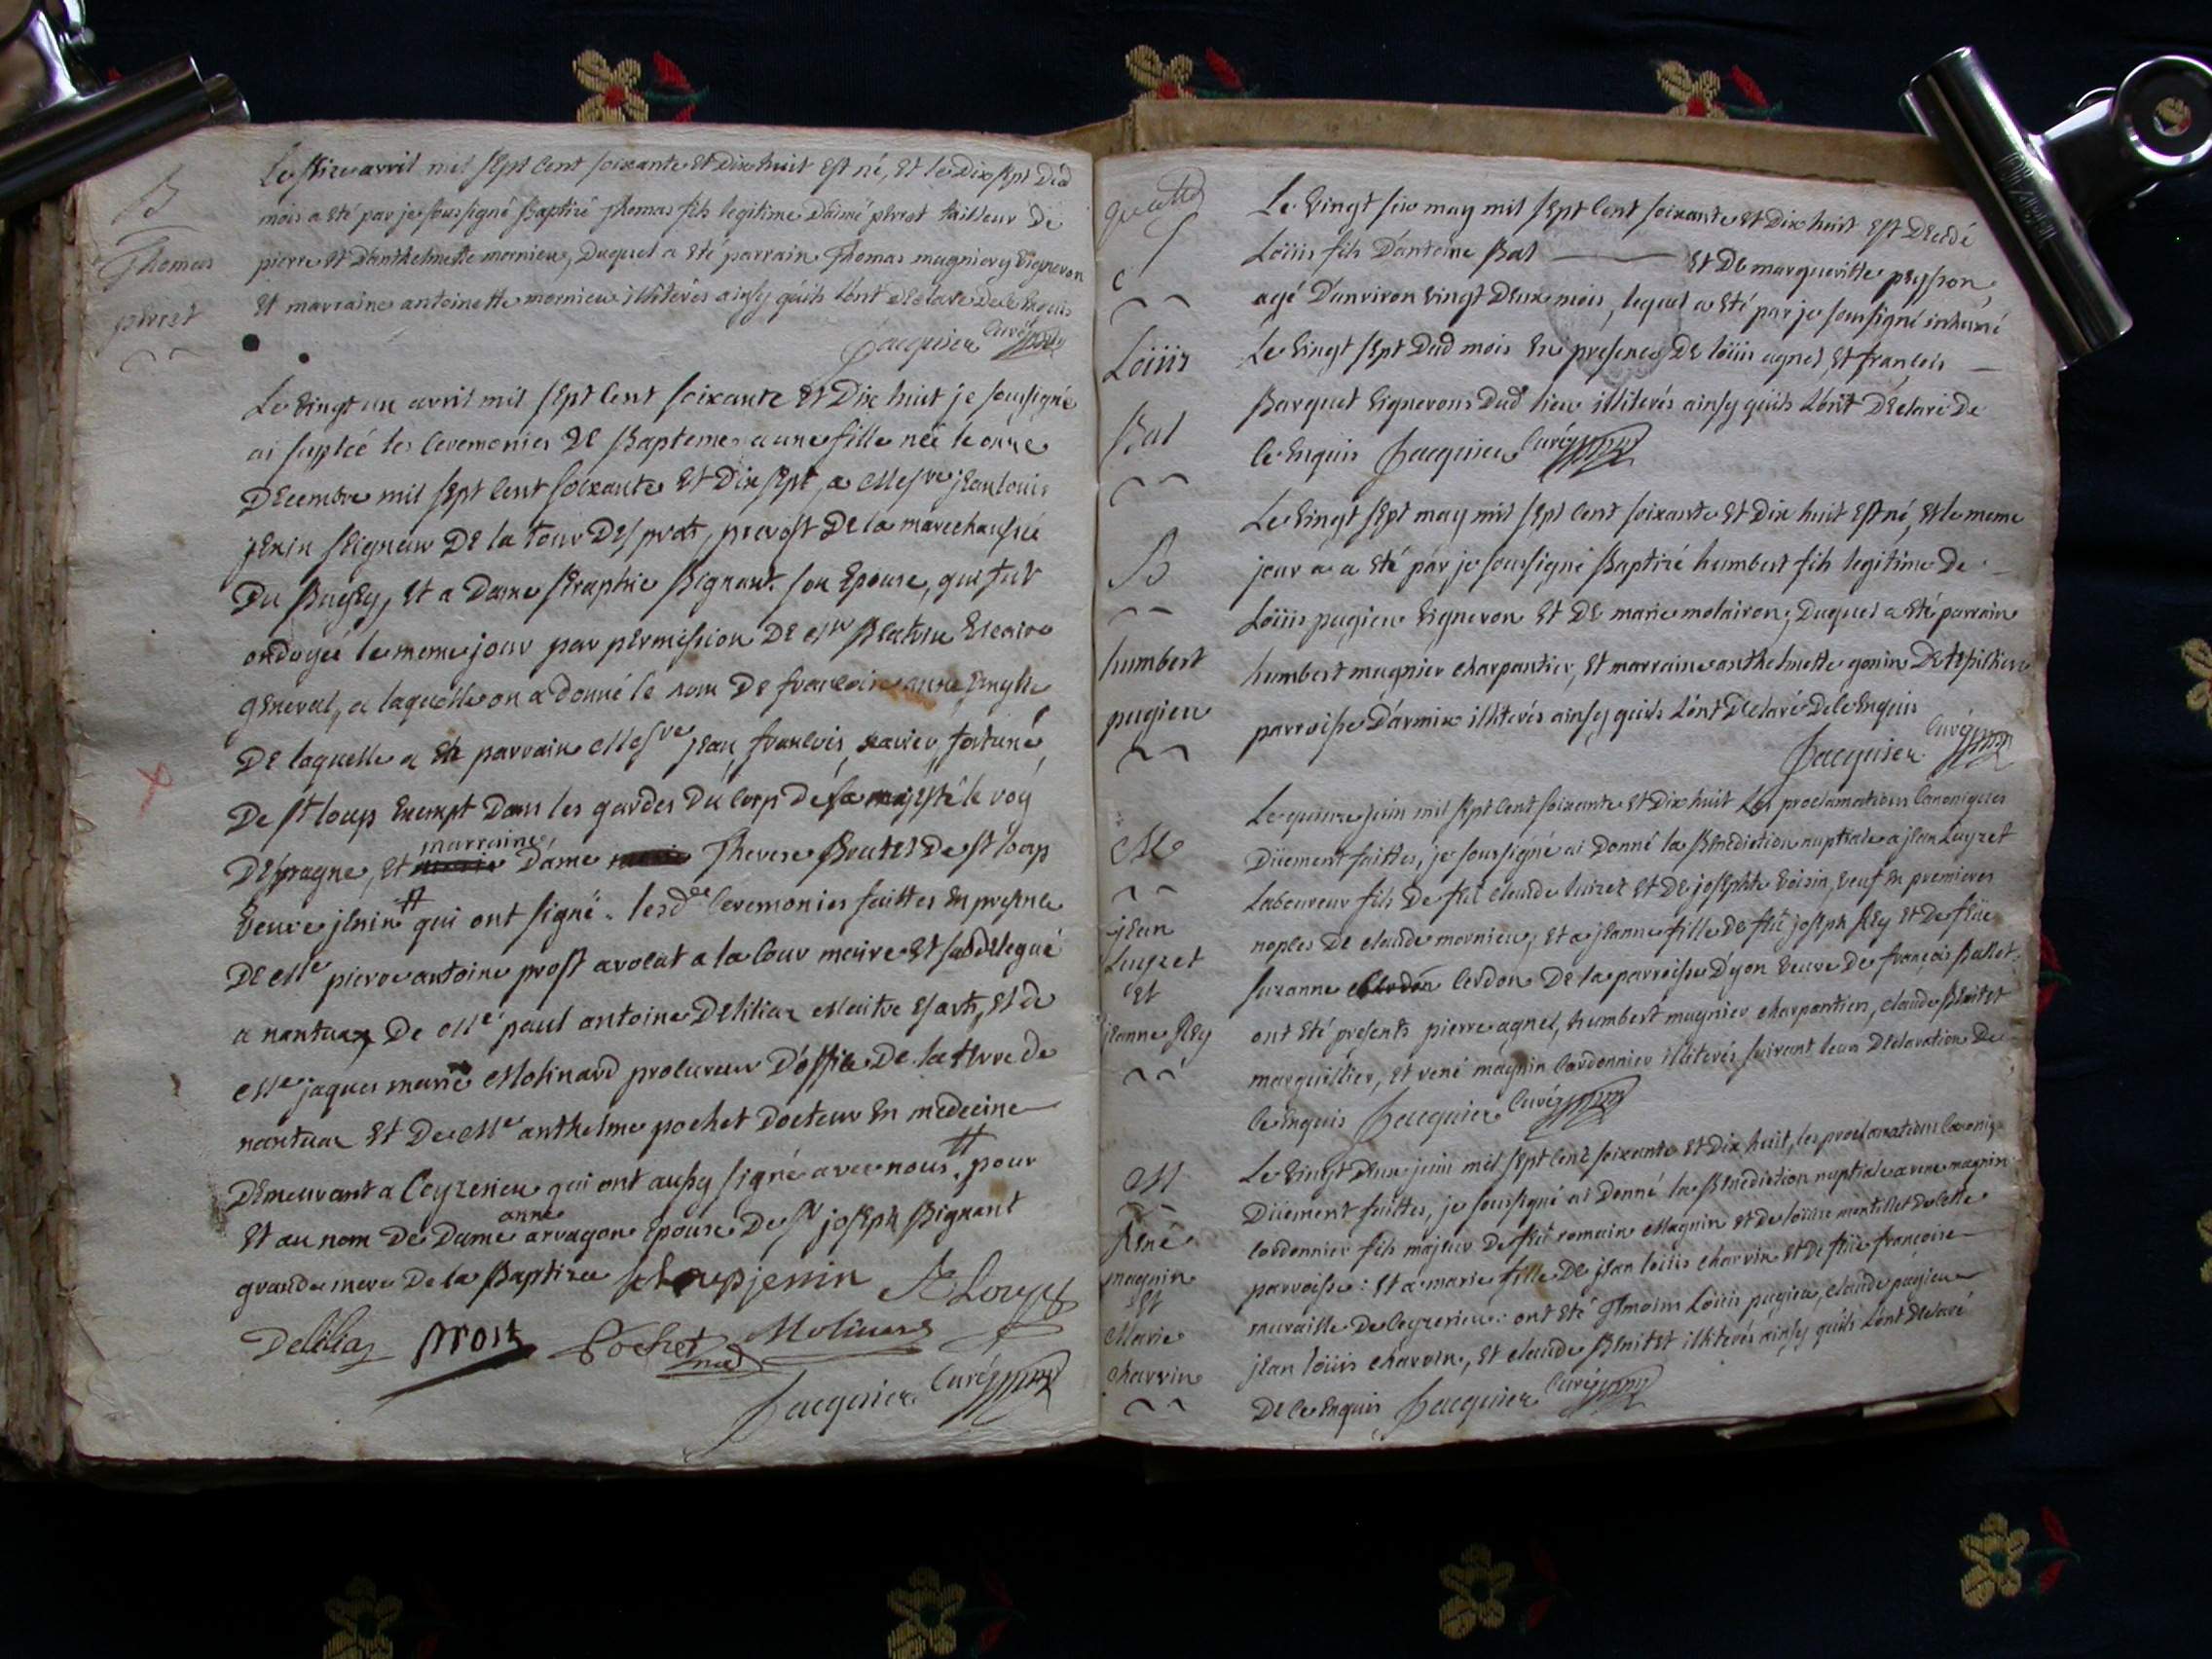 B
Thomas
perret
Le seize avril mil sept cent soixante et dix huit est né, et le dix sept dud
mois a été par je soussigné Baptizé Thomas fils legitime d'aimé perret tailleur de
pierre et d'anthelmette mornieu, duquel a été parrain Thomas magniery vigneron
et marraine antoinette mornieu illiterés ainsy quils l'ont declaré de ce enquis
Jacquier Curé
Le vingt un avril mil sept cent soixante et dix huit je soussigné
ai supleé les ceremonies de Bapteme a une fille née le onze
decembre mil sept cent soixante et dix sept, a Messre jean louis
jenin seigneur de la tour des prat, prevost de la marechaussée
du Bugey, et a Dame Seraphie Bignant son epouse, qui fut
ondoyée le meme jour par permission de Mr vicaire
general, a laquelle on a donné le nom de francoise anne
de laquelle a été parrain Messre jean, francois, xavier, fortuné,
de st loup exempt dans les gardes du corp de sa majesté le roy
d'espagne, et marraine, Dame Therese de st loup
veuve jenin # qui ont signé. lesdes ceremonies faittes en presence
de Me pierre antoine prost avocat a la cour maire et subdelegué
a nantuax de Me paul antoine Delilia Maitre es arts, et de
Me jaques marie Molinard procureur d'office de la terre de
nantua et de Me anthelme pochet docteur en medecine
demeurant a Ceyzerieu qui ont aussy signé avec nous. # pour
et au nom de Dame anne arragon epouse de sr joseph Bignant
grande mere de la Baptizée st loup jenin St Loup
Delilia prost Pochet med Molinard
Jacquier Curé
C
Loüis
Bal
Le vingt six may mil sept cent soixante et dix huit est decedé
Loüis fils d'antoine Bal et de margueritte peysson,
agé d'anviron vingt deux mois, lequel a été par je soussigné inhumé
Le vingt sept dud mois en presence de loüis agnel, et francois
Barquet vignerons dud lieu illiterés ainsy quils l'ont declaré de
ce enquis Jacquier Curé
B
humbert
pugieu
Le vingt sept may mil sept cent soixante et dix huit est né, et le meme
jour a a été par je soussigné Baptizé humbert fils legitime de
Loüis pugieu vigneron et de marie molairon; duquel a été parrain
humbert magnier charpantier, et marraine anthelmette gonin de
parroisse d'armix illiterés ainsy quils l'ont declaré de ce enquis
Jacquier Curé
M
jean
Luyzet
et
jeanne Rey
Le quinze juin mil sept cent soixante et dix huit les proclamations canoniques
düement faittes, je soussigné ai donné la Benediction nuptiale a jean Luyzet
laboureur fils de feu claude luizet et de josephte voisin, veuf en premieres
noples de claude mornieu; et a jeanne fille de feu joseph Rey et de feüe
suzanne Cerdon de la parroisse d'yon veuve de françois Ballet.
ont été presents pierre agnel, humbert magnier charpantier, claude Benitet
marguillier, et rené magnin cordonnier illiterés suivant leur declaration de
ce enquis Jacquier Curé
M
René
magnin
et
Marie
charvin
Le vingt deux juin mil sept cent soixante et dix huit, les proclamations canoniq.
düement faittes, je soussigné ai donné la Benediction nuptiale a rene magnin
cordonnier fils majeur de feu romain Magnin et de loüise montillet de cette
parroisse: et a marie fille de jean loüis charvin et de feüe francoise
muraille de Ceyzerieu: ont été temoins Loüis pugieu, claude pugieu
jean loüis charvin, et claude Benitet illiterés ainsy quils l'ont declaré
de ce enquis Jacquier Curé